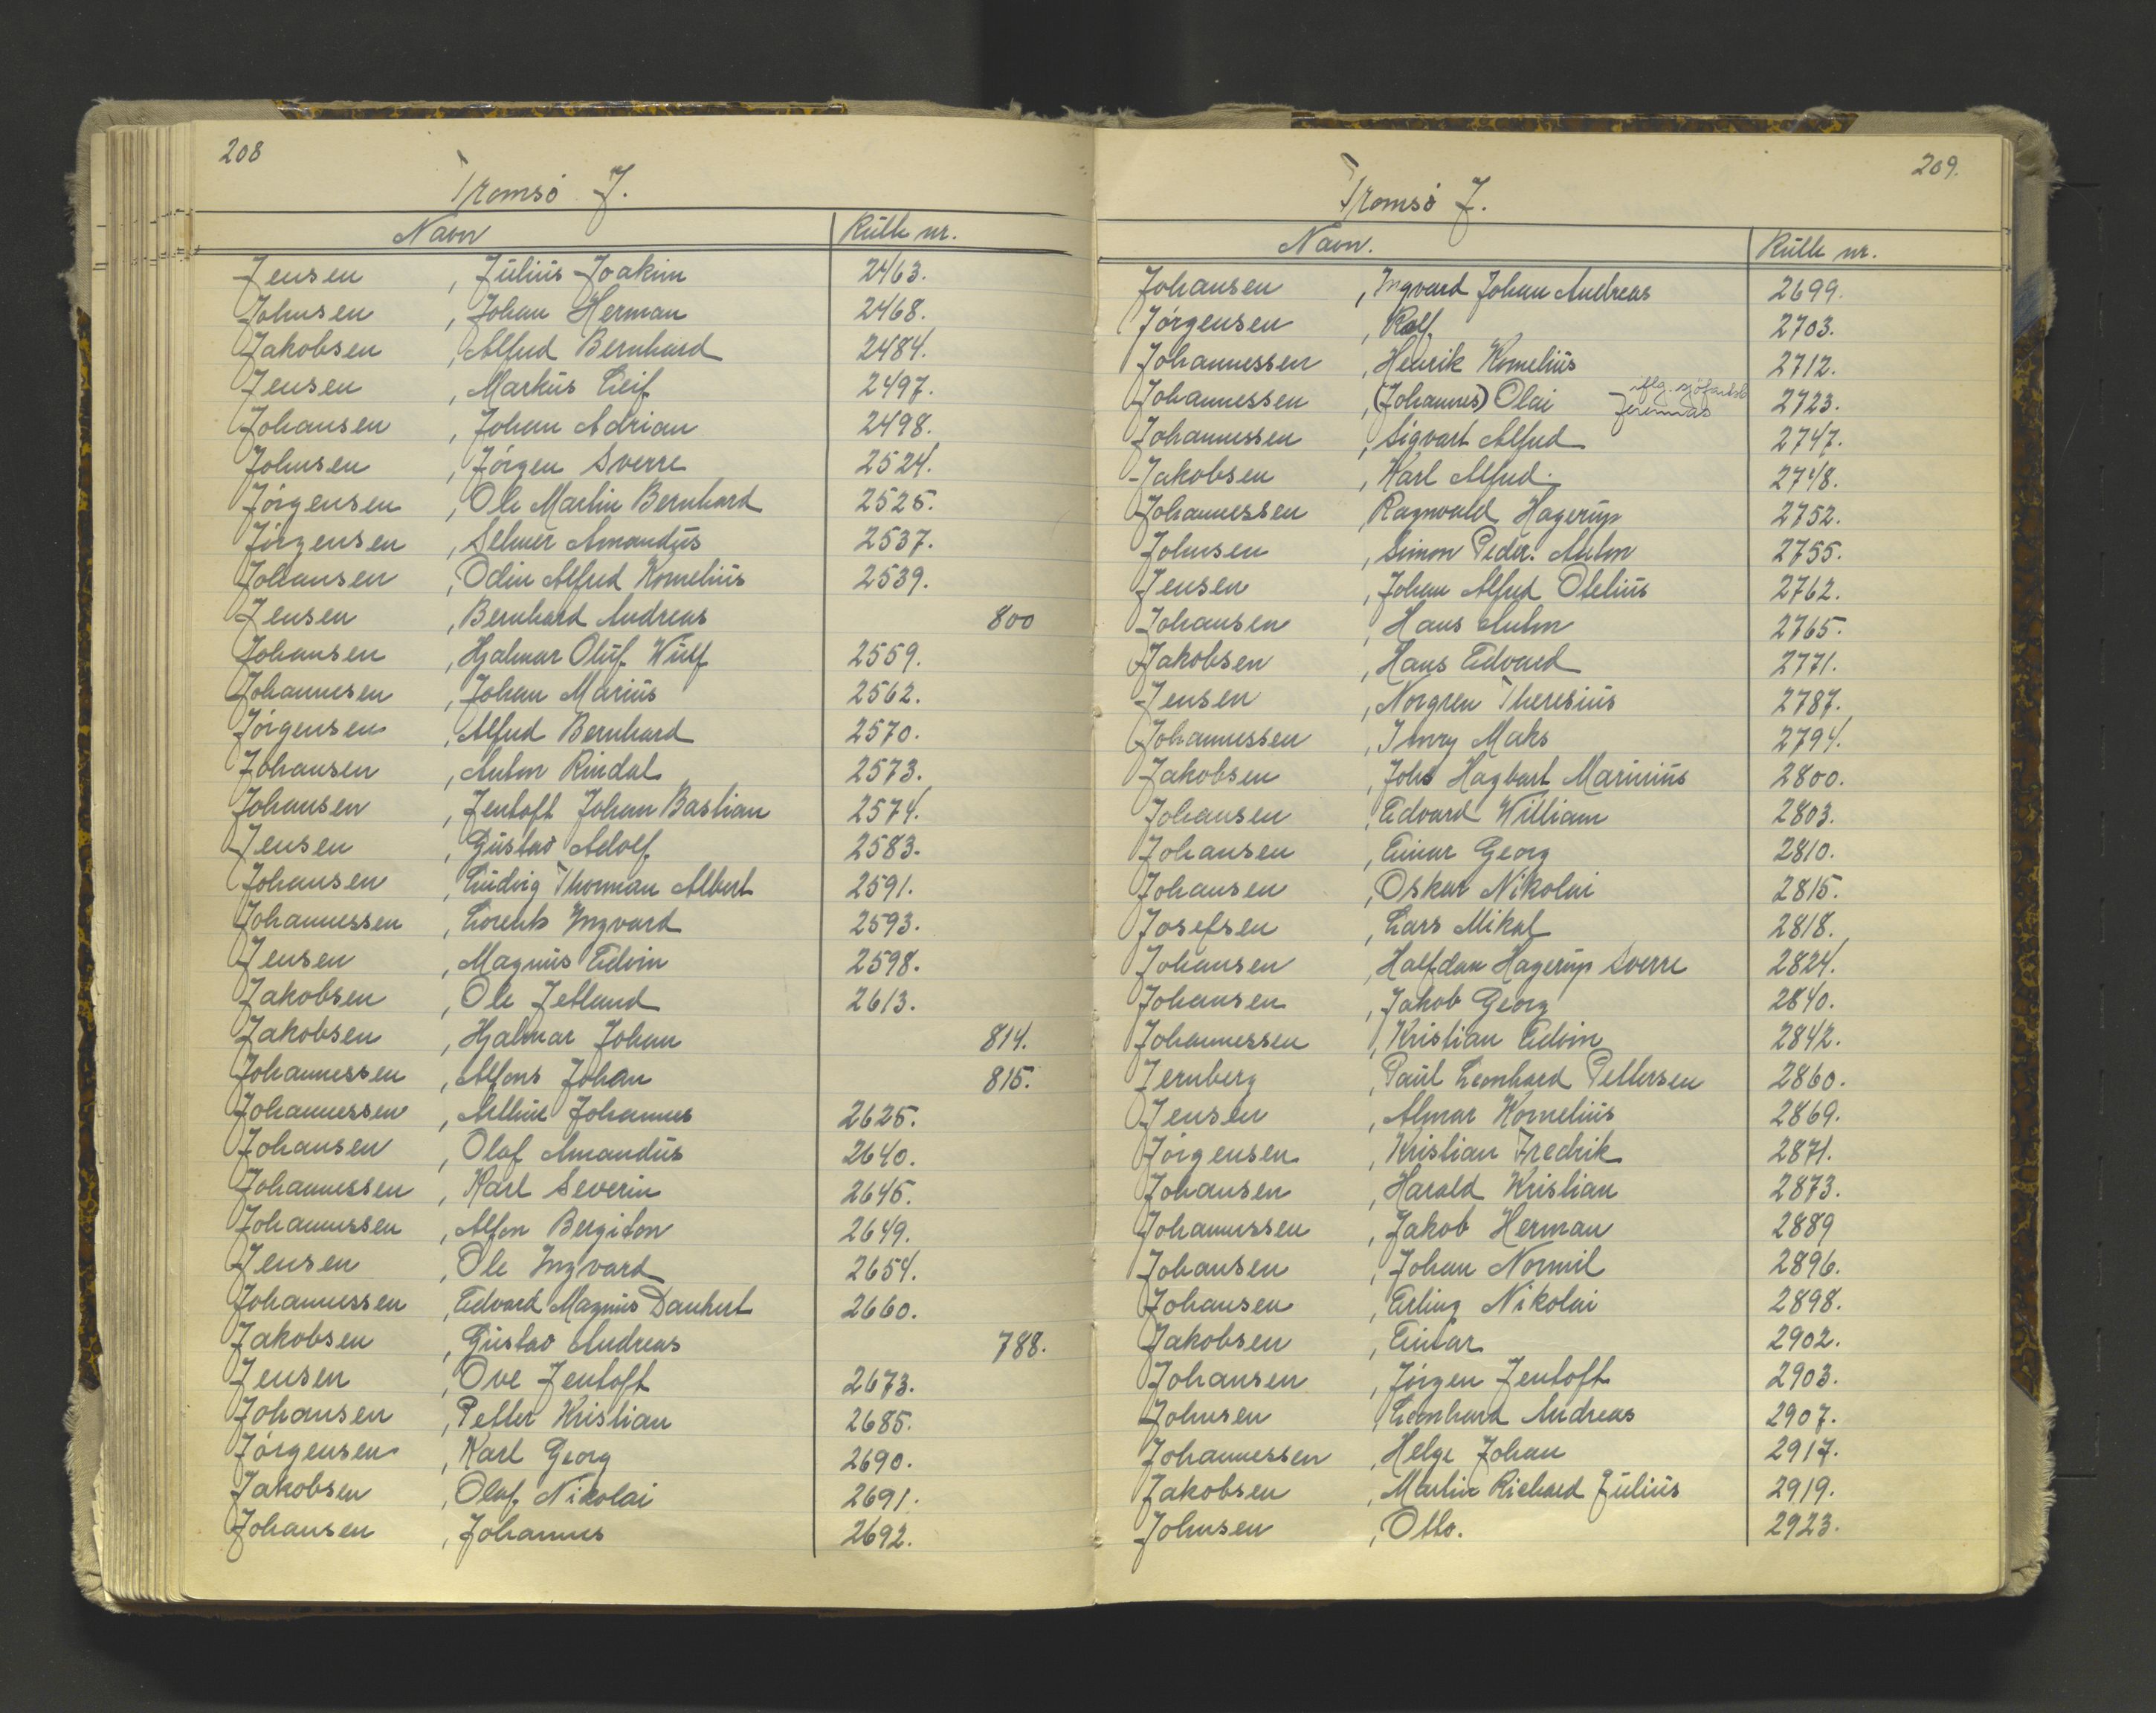 208
Tromsö J.
Navn Rulle nr.
Jensen , Julius Joakim 2463.
Johnsen , Johan Herman 2468.
Jakobsen , Alfred Bernhard 2484.
Jensen , Markus Leif 2497.
Johansen , Johan Adrian 2498.
Johnsen , Jörgen Sverre 2524.
Jörgensen , Ole Martin Bernhard 2525.
Jörgensen , Selmer Amandus 2537.
Johansen , Odin Alfred Kornelius 2539.
Jensen , Bernhard Andreas 800
Johansen , Hjalmar Oluf Wulf 2559.
Johannesen , Johan Marius 2562.
Jörgensen , Alfred Bernhard 2570.
Johansen , Anton Rindal 2573.
Johansen , Jentoft Johan Bastian 2574.
Jensen , Gustav Adolf 2583.
Johansen , Ludvig Thorman Albert 2591.
Johannessen , Lorents Ingvard 2593.
Jensen , Magnus Edvin 2598.
Jakobsen , Ole Jetland 2613.
Jakobsen , Hjalmar Johan 814.
Johannessen , Alfons Johan 815.
Johannessen , Johannes 2625.
Johansen , Olaf Amandus 2640.
Johannessen , Karl Severin 2645.
Johannessen , Alfon Bergiton 2649.
Jensen , Ole Ingvard 2654.
Johannessen , Edvard Magnus Dankert 2660.
Jakobsen , Gustav Andreas 788.
Jensen , Ove Jentoft 2673.
Johansen , Petter Kristian 2685.
Jörgensen , Karl Georg 2690.
Jakobsen , Olaf Nikolai 2691.
Johansen , Johannes 2692.
209.
Tromsö J.
Navn. Rulle nr.
Johansen , Ingvard Johan Andreas 2699.
Jörgensen , Rolf 2703.
Johannessen , Henrik Kornelius 2712.
Johannessen , (Johannes) Olai iflg. sjöfartsb Jeremias 2723.
Johannessen , Sigvart Alfred 2747.
Jakobsen , Karl Alfred 2748.
Johannessen , Ragnvald Hagerup 2752.
Johnsen , Simon Peder. Anton 2755.
Jensen , Johan Alfred Otelius 2762.
Johansen , Hans Anton 2765.
Jakobsen , Hans Edvard 2771.
Jensen , Norgren Theresius 2787.
Johannessen , Imry Maks 2794.
Jakobsen , Johs Hagbart Marinius 2800.
Johansen , Edvard William 2803.
Johansen , Einar Georg 2810.
Johansen , Oskar Nikolai 2815.
Josefsen , Lars Mikal 2818.
Johansen , Halfdan Hagerup Sverre 2824.
Johansen , Jakob Georg 2840.
Johannessen , Kristian Edvin 2842.
Jernberg , Paul Leonhard Pettersen 2860.
Jensen , Almar Kornelius 2869.
Jörgensen , Kristian Fredrik 2871.
Johansen , Harald Kristian 2873.
Johannessen , Jakob Herman 2889
Johansen , Johan Normil 2896.
Johansen , Erling Nikolai 2898.
Jakobsen , Einar 2902.
Johansen , Jörgen Jentoft 2903.
Johnsen , Leonhard Andreas 2907.
Johannessen , Helge Johan 2917.
Jakobsen , Martin Richard Julius 2919.
Johnsen , Otto. 2923.